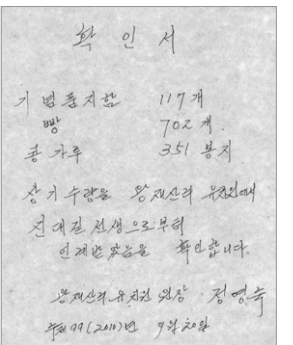 확 인 서
기 범 퐁 지 함 117개
빵 702개.
콩 가루 351 봉지
상기 수량을 왕재산리 유치원에서
전대진 선생으로부터
인계받았음을 확인합니다.
왕재산리 유치원 원장 정영숙
주체 99 (2010)년 9월 20일